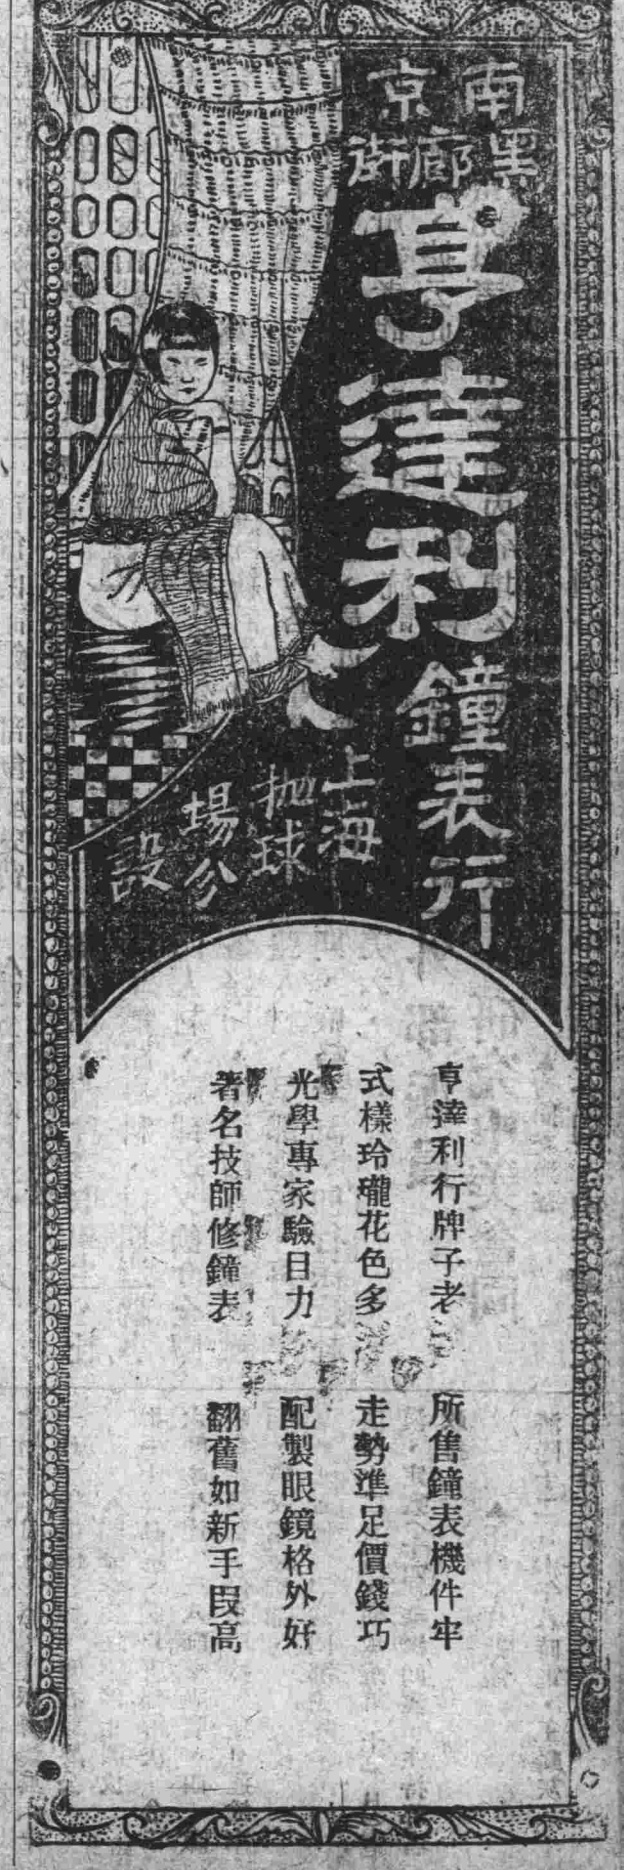 南京
黑廊街
亨達利
鐘表行
上海
拋球
場分
設
亨達利行牌子老　所售鐘表機件牢
式樣玲瓏花色多　走勢準足價錢巧
光學專家驗目力　配製眼鏡格外好
著名技師修鐘表　翻舊如新手段高